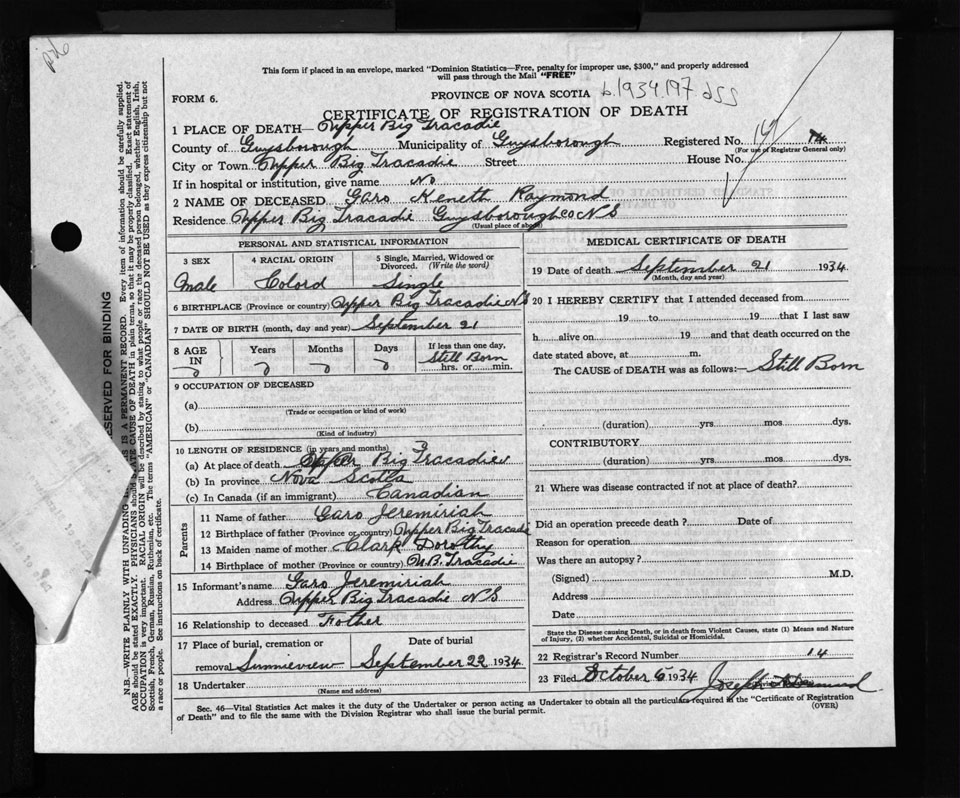 This form if placed in an envelope, marked "Dominion Statistics—Free, penalty for improper use, $300," and properly addressed
will pass through the Mail "FREE"
FORM 6.
PROVINCE OF NOVA SCOTIA b.1934.197
CERTIFICATE OF REGISTRATION OF DEATH
1 PLACE OF DEATH— Upper Big Tracadie
County of Guysborough Municipality of Guysborough Registered No. 14
(For use of Registrar General only)
City or Town Upper Big Tracadie Street House No.
If in hospital or institution, give name No
2 NAME OF DECEASED Garo Keneth Raymond
Residence Upper Big Tracadie Guysborough Co N S
(Usual place of abode)
PERSONAL AND STATISTICAL INFORMATION
3 SEX 4 RACIAL ORIGIN 5 Single, Married, Widowed or
Divorced. (Write the word)
Male Colord Single
6 BIRTHPLACE (Province or country) Upper Big Tracadie N S
7 DATE OF BIRTH (month, day and year) September 21
8 AGE IN Years Months Days If less than one day,
Still Born
hrs. or min.
9 OCCUPATION OF DECEASED
(a)
(Trade or occupation or kind of work)
(b)
(Kind of industry)
10 LENGTH OF RESIDENCE (in years and months)
(a) At place of death Upper Big Tracadie
(b) In province Nova Scotia
(c) In Canada (if an immigrant) Canadian
Parents
11 Name of father Garo Jeremiriah
12 Birthplace of father (Province or country) Upper Big Tracadie
13 Maiden name of mother Clark Dorothy
14 Birthplace of mother (Province or country) U.B. Tracadie
15 Informant's name Garo Jeremiriah
Address Upper Big Tracadie N S
16 Relationship to deceased Father
17 Place of burial, cremation or Date of burial
removal Sunnieview September 22 1934
18 Undertaker
(Name and address)
MEDICAL CERTIFICATE OF DEATH
19 Date of death September 21 1934
(Month, day and year)
20 I HEREBY CERTIFY that I attended deceased from
19 to 19 that I last saw
h alive on 19 and that death occurred on the
date stated above, at m.
The CAUSE of DEATH was as follows:— Still Born
(duration) yrs mos dys.
CONTRIBUTORY
(duration) yrs mos dys.
21 Where was disease contracted if not at place of death?
Did an operation precede death ? Date of
Reason for operation
Was there an autopsy ?
(Signed) M.D.
Address
Date
State the Disease causing Death, or in death from Violent Causes, state (1) Means and Nature
of Injury, (2) whether Accidental, Suicidal or Homicidal.
22 Registrar's Record Number 14
23 Filed October 6 1934 Joseph
Sec. 46—Vital Statistics Act makes it the duty of the Undertaker or person acting as Undertaker to obtain all the particulars required in the "Certificate of Registration
of Death" and to file the same with the Division Registrar who shall issue the burial permit.
(OVER)
RESERVED FOR BINDING
N.B.—WRITE PLAINLY WITH UNFADING IS A PERMANENT RECORD. Every item of information should be carefully supplied.
AGE should be stated EXACTLY. PHYSICIANS should CAUSE OF DEATH in plain terms, so that it may be properly classified. Exact statement of
OCCUPATION is very important. RACIAL ORIGIN will be described by stating to what people or race the deceased person belonged, whether English, Irish,
Scottish, French, German, Russian, Ruthenian, etc. The terms "AMERICAN" or "CANADIAN" SHOULD NOT BE USED as they express citizenship but not
a race or people. See instructions on back of certificate.